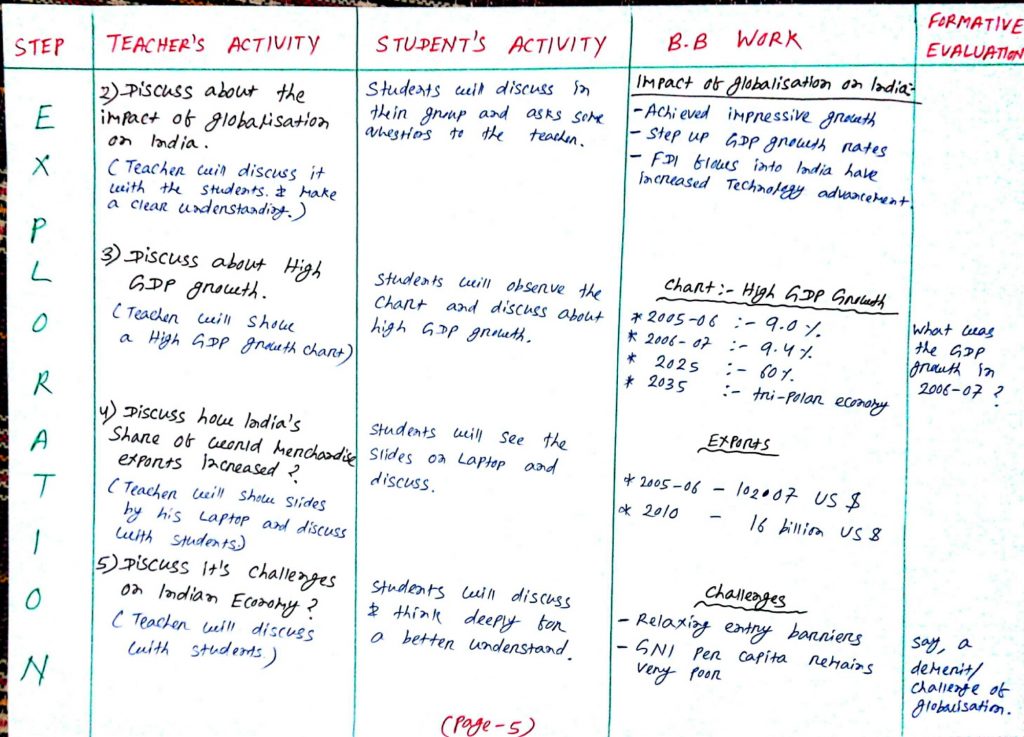 STEP
TEACHER'S ACTIVITY
STUDENT'S ACTIVITY
B.B WORK
FORMATIVE
EVALUATION
EXPLORATION
2) Discuss about the
impact of globalisation
on India.
(Teacher will discuss it
with the students. & make
a clear understanding.)
Students will discuss in
their group and asks some
questions to the teacher.
Impact of globalisation on India:-
- Achieved impressive growth
- Step up GDP growth rates
- FDI flows into India have
increased Technology advancement.
3) Discuss about High
GDP growth.
(Teacher will show
a High GDP growth chart)
Students will observe the
chart and discuss about
high GDP growth.
Chart :- High GDP Growth
* 2005-06 :- 9.0 %
* 2006-07 :- 9.4 %
* 2025 :- 60 %
* 2035 :- tri-polar economy
What was
the GDP
growth in
2006-07 ?
4) Discuss how India's
Share of world Merchandise
exports increased ?
(Teacher will show slides
by his Laptop and discuss
with students.)
Students will see the
slides on Laptop and
discuss.
Exports
* 2005-06 - 102007 US $
* 2010 - 16 billion US $
5) Discuss it's challenges
on Indian Economy ?
(Teacher will discuss
with students.)
Students will discuss
& think deeply for
a better understand.
Challenges
- Relaxing entry barriers
- GNI Per capita remains
very poor
Say, a
demerit/
challenge of
globalisation.
(Page-5)